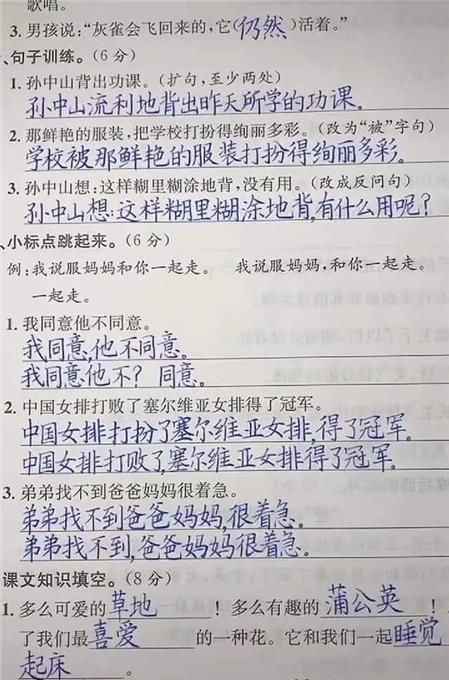 歌唱。
3. 男孩说:“灰雀会飞回来的,它(仍然)活着。”
、句子训练。(6分)
1. 孙中山背出功课。(扩句,至少两处)
孙中山流利地背出昨天所学的功课。
2. 那鲜艳的服装,把学校打扮得绚丽多彩。(改为“被”字句)
学校被那鲜艳的服装打扮得绚丽多彩。
3. 孙中山想:这样糊里糊涂地背,没有用。(改成反问句)
孙中山想:这样糊里糊涂地背,有什么用呢?
、小标点跳起来。(6分)
例:我说服妈妈和你一起走。 我说服妈妈,和你一起走。
一起走。
1. 我同意他不同意。
我同意,他不同意。
我同意他不? 同意。
2. 中国女排打败了塞尔维亚女排得了冠军。
中国女排打扮了塞尔维亚女排,得了冠军。
中国女排打败了,塞尔维亚女排得了冠军。
3. 弟弟找不到爸爸妈妈很着急。
弟弟找不到爸爸妈妈,很着急。
弟弟找不到,爸爸妈妈很着急。
课文知识填空。(8分)
1. 多么可爱的 草地 !多么有趣的 蒲公英 !
了我们最 喜爱 的一种花。它和我们一起 睡觉
起床 。